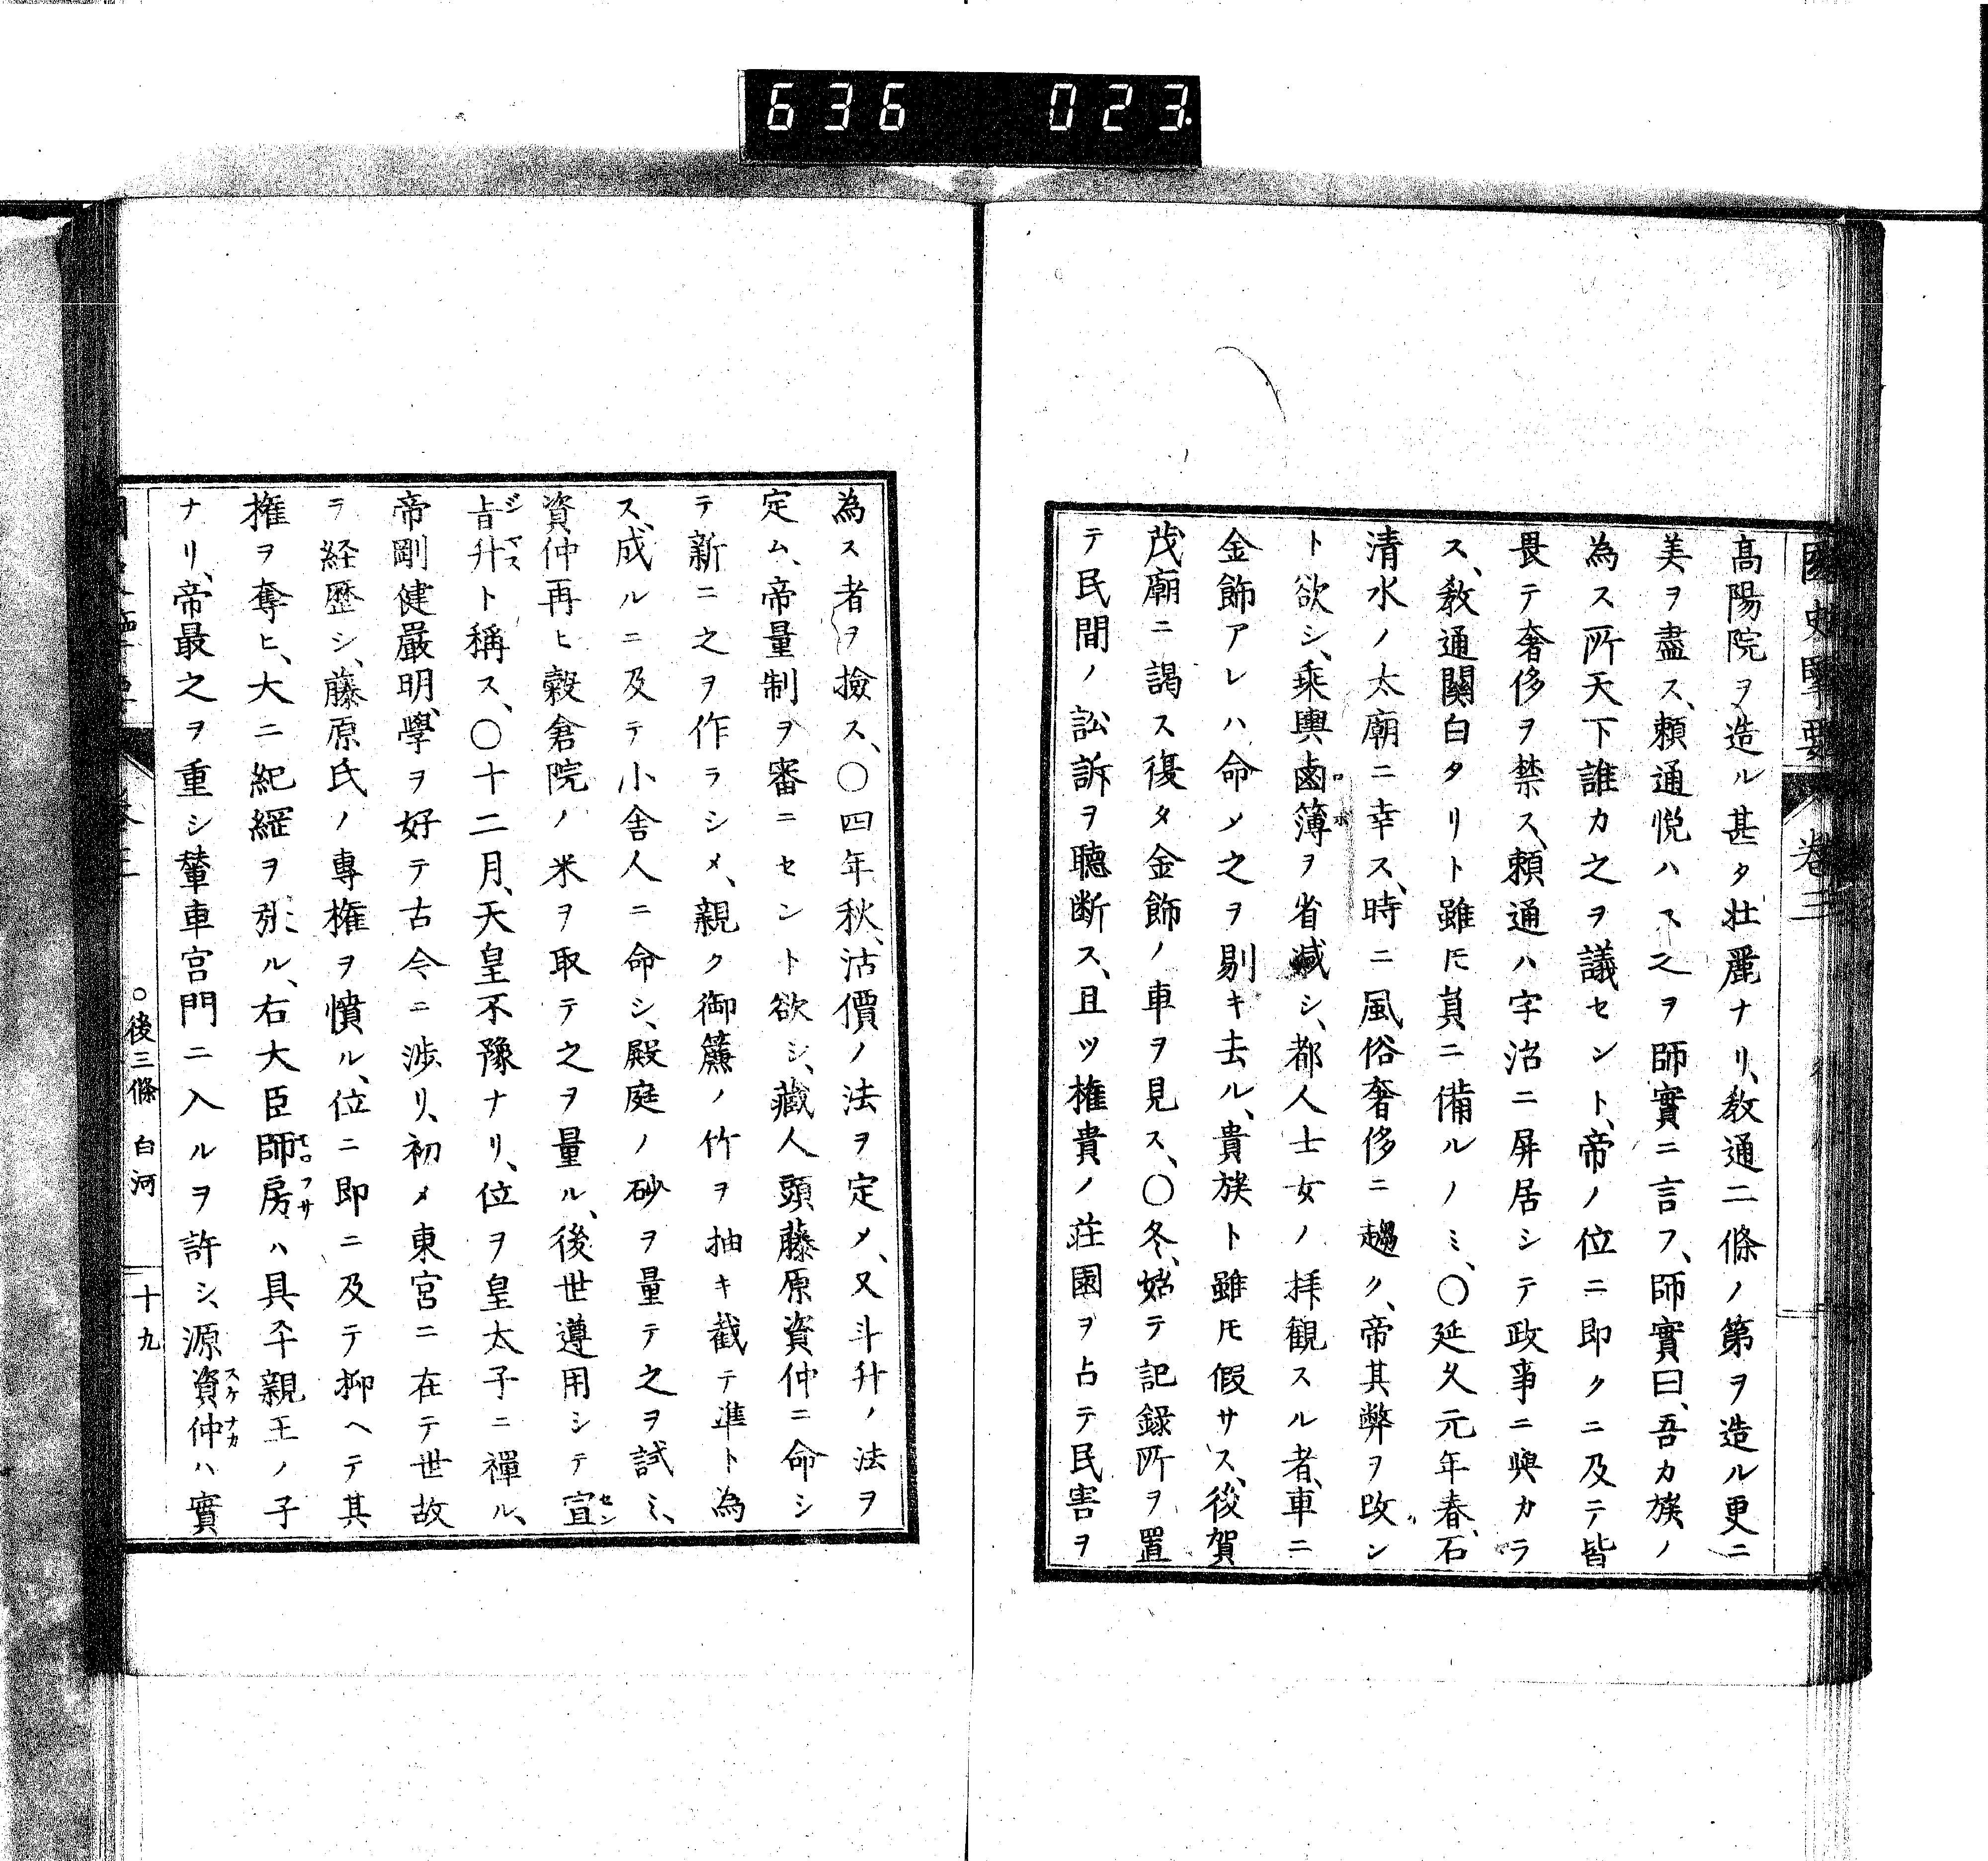 636 023
國史擥要 卷三
高陽院ヲ造ル甚タ壮麗ナリ、敎通二條ノ第ヲ造ル更ニ
美ヲ盡ス、頼通悦ハス之ヲ師實ニ言フ、師實曰、吾カ族ノ
為ス所天下誰カ之ヲ議セント、帝ノ位ニ即クニ及テ皆
畏テ奢侈ヲ禁ス、頼通ハ宇治ニ屏居シテ政事ニ與カラ
ス、敎通關白タリト雖𪜈員ニ備ルノミ、〇延久元年春、石
清水ノ太廟ニ幸ス、時ニ風俗奢侈ニ趨ク、帝其弊ヲ改ン
ト欲シ、乘輿鹵簿ヲ省減シ、都人士女ノ拝観スル者、車ニ
金飾アレハ命メ之ヲ剔キ去ル、貴族ト雖𪜈假サス、後賀
茂廟ニ謁ス復タ金飾ノ車ヲ見ス、〇冬、始テ記録所ヲ置
テ民間ノ訟訴ヲ聴断ス、且ツ権貴ノ荘園ヲ占テ民害ヲ
為ス者ヲ撿ス、〇四年秋、沽價ノ法ヲ定メ、又斗升ノ法ヲ
定ム、帝量制ヲ審ニセント欲シ、藏人頭藤原資仲ニ命シ
テ新ニ之ヲ作ラシメ、親ク御簾ノ竹ヲ抽キ截テ準ト為
ス、成ルニ及テ小舎人ニ命シ、殿庭ノ砂ヲ量テ之ヲ試ミ、
資仲再ヒ穀倉院ノ米ヲ取テ之ヲ量ル、後世遵用シテ宣セン
旨ジ升マスト稱ス、〇十二月、天皇不豫ナリ、位ヲ皇太子ニ禪ル、
帝剛健嚴明、學ヲ好テ古今ニ渉リ、初メ東宮ニ在テ世故
ラ経歴シ、藤原氏ノ專権ヲ憤ル、位ニ即ニ及テ抑ヘテ其
権ヲ奪ヒ、大ニ紀綱ヲ張ル、右大臣師房モロフサハ具平親王ノ子
ナリ、帝最之ヲ重シ輦車宮門ニ入ルヲ許シ、源資仲スケナカハ實
〇後三條 白河 十九